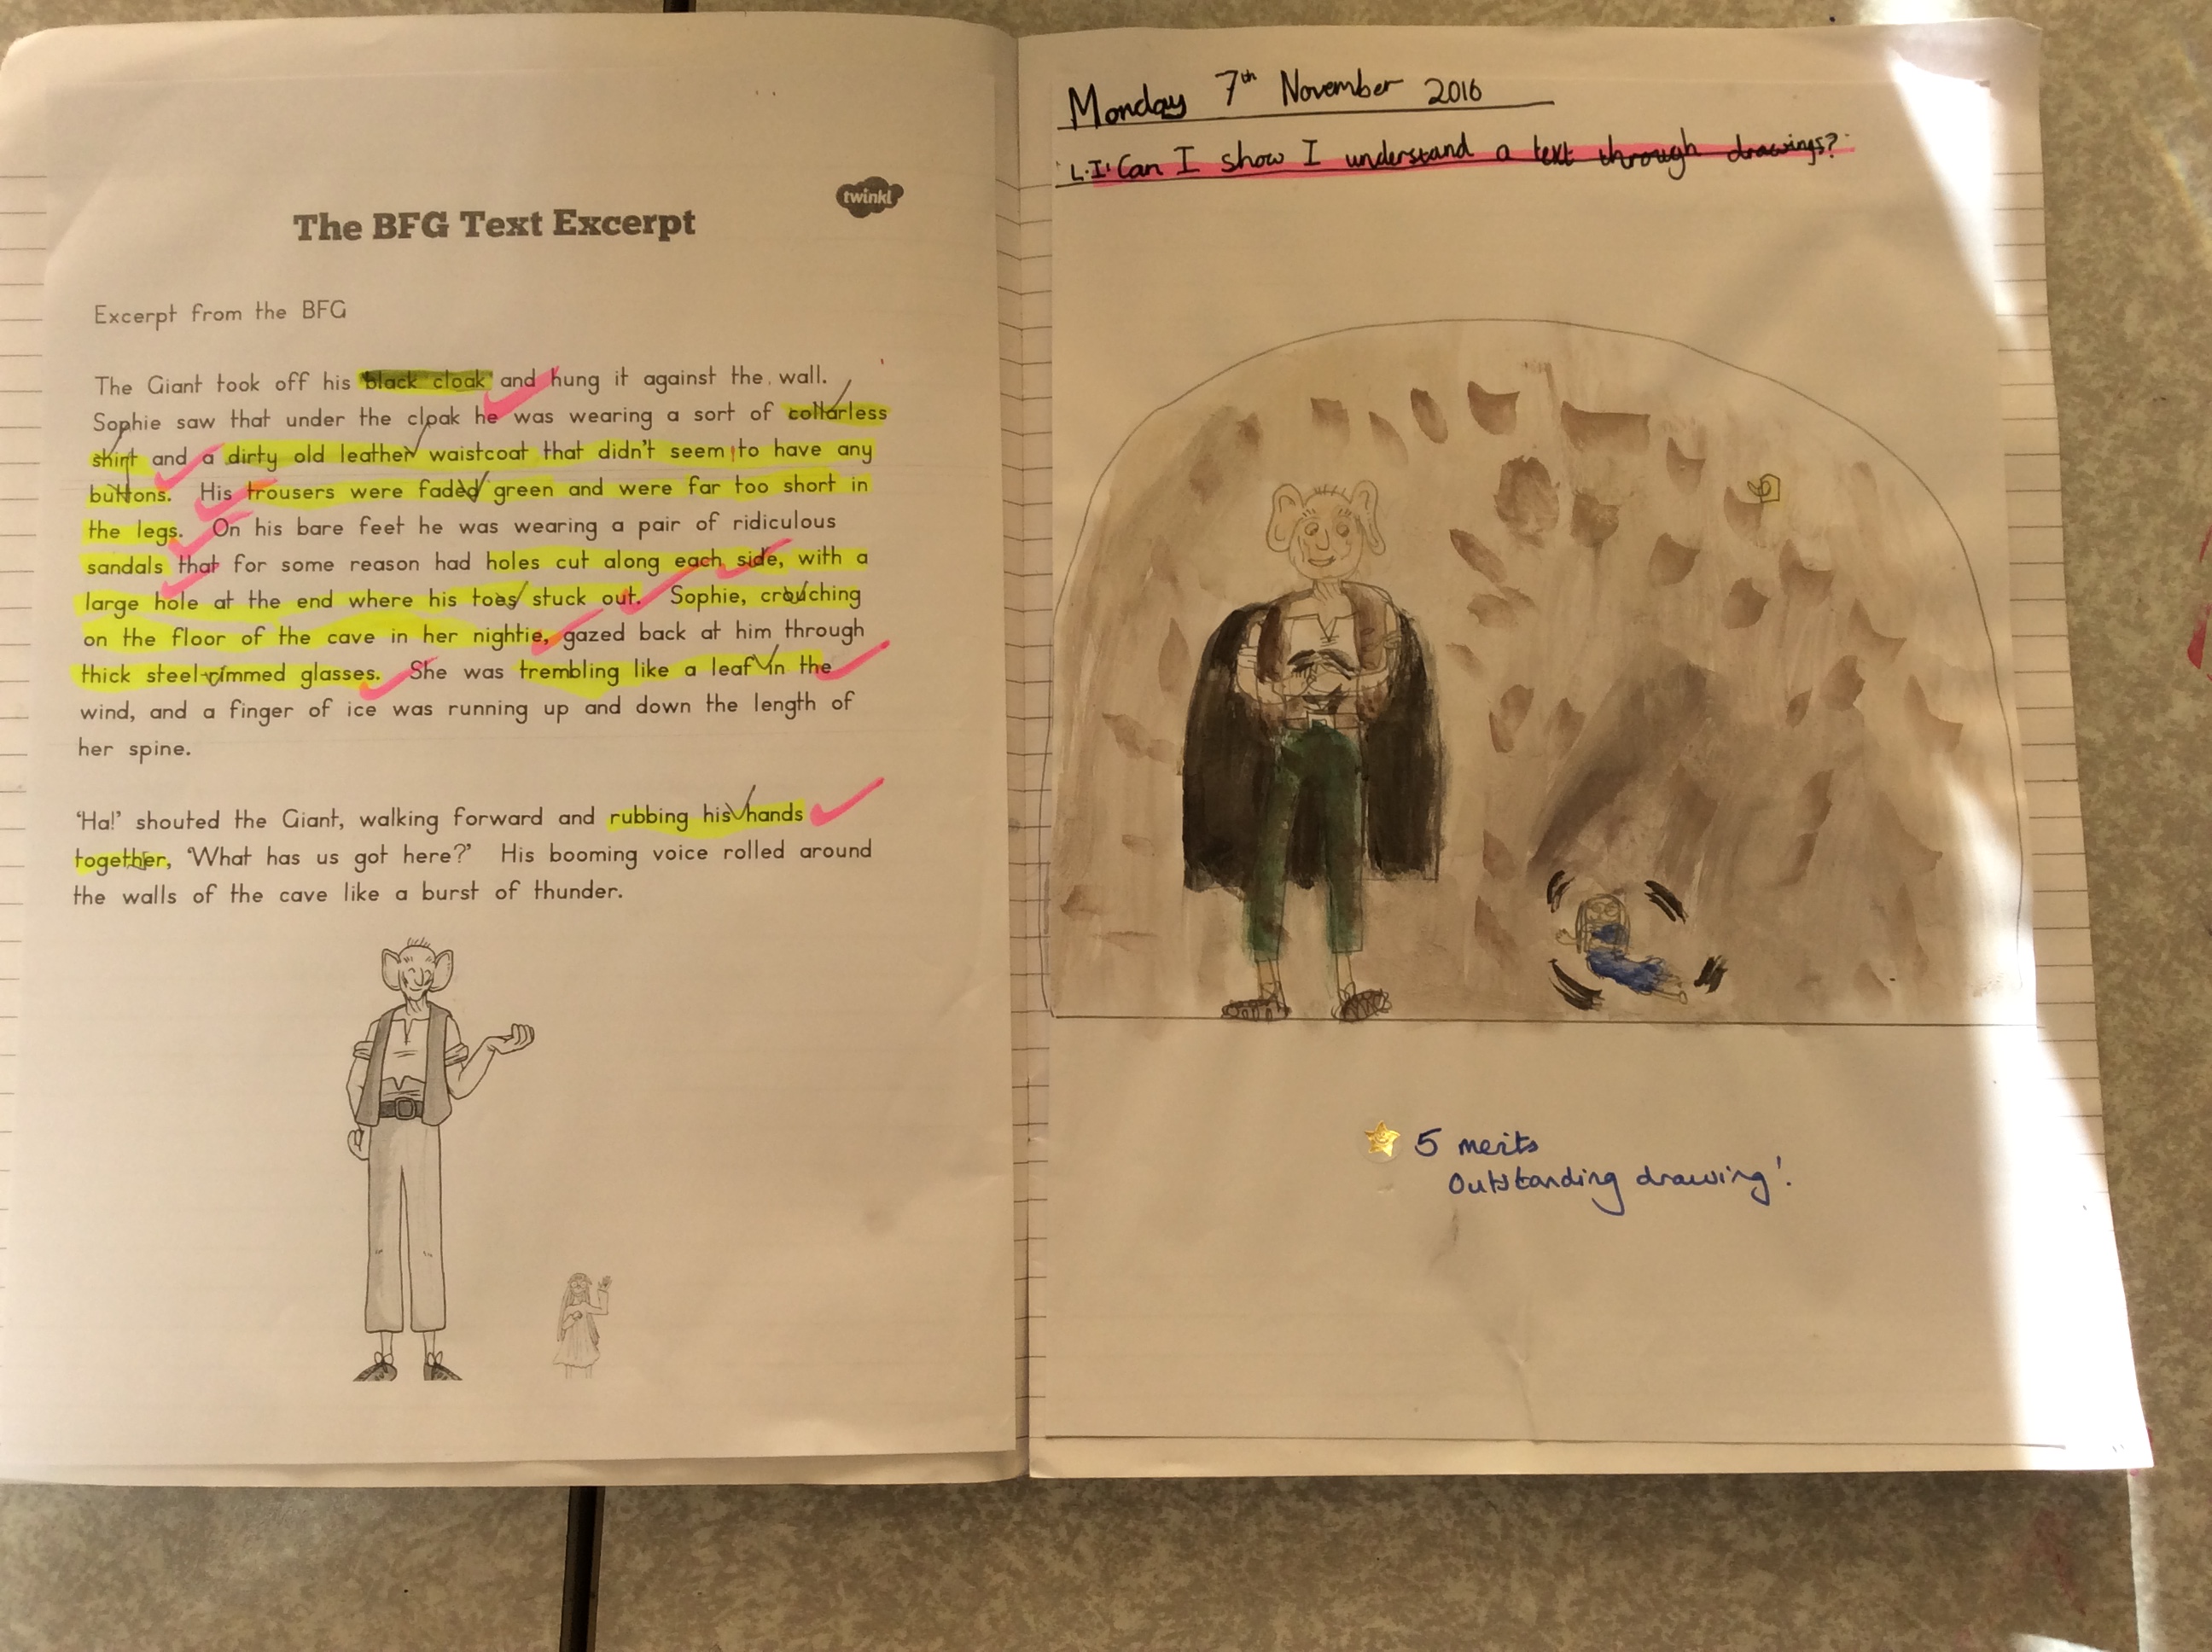 twinkl
The BFG Text Excerpt
Excerpt from the BFG
The Giant took off his black cloak and hung it against the wall.
Sophie saw that under the cloak he was wearing a sort of collarless
shirt and a dirty old leather waistcoat that didn't seem to have any
buttons. His trousers were faded green and were far too short in
the legs. On his bare feet he was wearing a pair of ridiculous
sandals that for some reason had holes cut along each side, with a
large hole at the end where his toes stuck out. Sophie, crouching
on the floor of the cave in her nightie, gazed back at him through
thick steel-rimmed glasses. She was trembling like a leaf in the
wind, and a finger of ice was running up and down the length of
her spine.
'Ha!' shouted the Giant, walking forward and rubbing his hands
together, 'What has us got here?' His booming voice rolled around
the walls of the cave like a burst of thunder.
Monday 7th November 2016
L.I: Can I show I understand a text through drawings?
5 merits
Outstanding drawing!